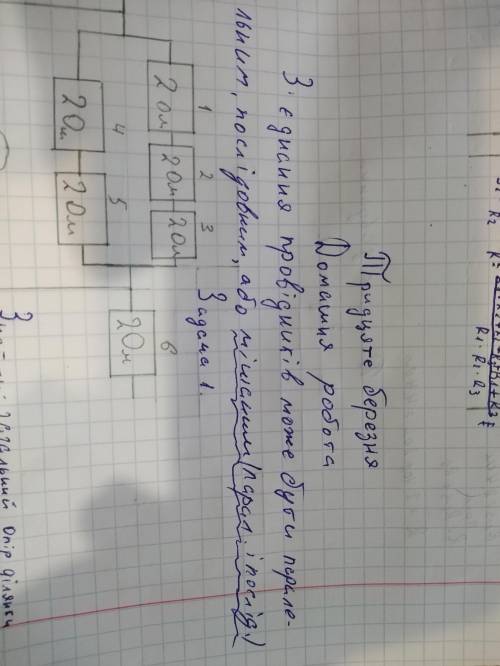 R1·R2·R3
Тридцяте березня
Домашня робота
З'єднання провідників може бути парале-
льним, послідовним, або мішаним (парал. і послід.)
Задача 1.
1 2 3
2 Ом 2 Ом 2 Ом
4 5 6
2 Ом 2 Ом 2 Ом
загальний опір ділянки